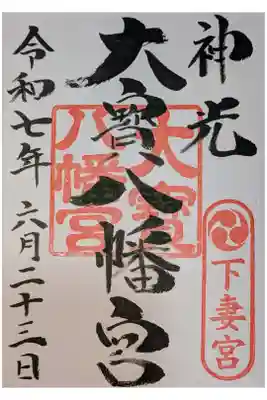 神光
大寶八幡宮
大宝
八幡宮
下妻宮
令和七年 六月二十三日